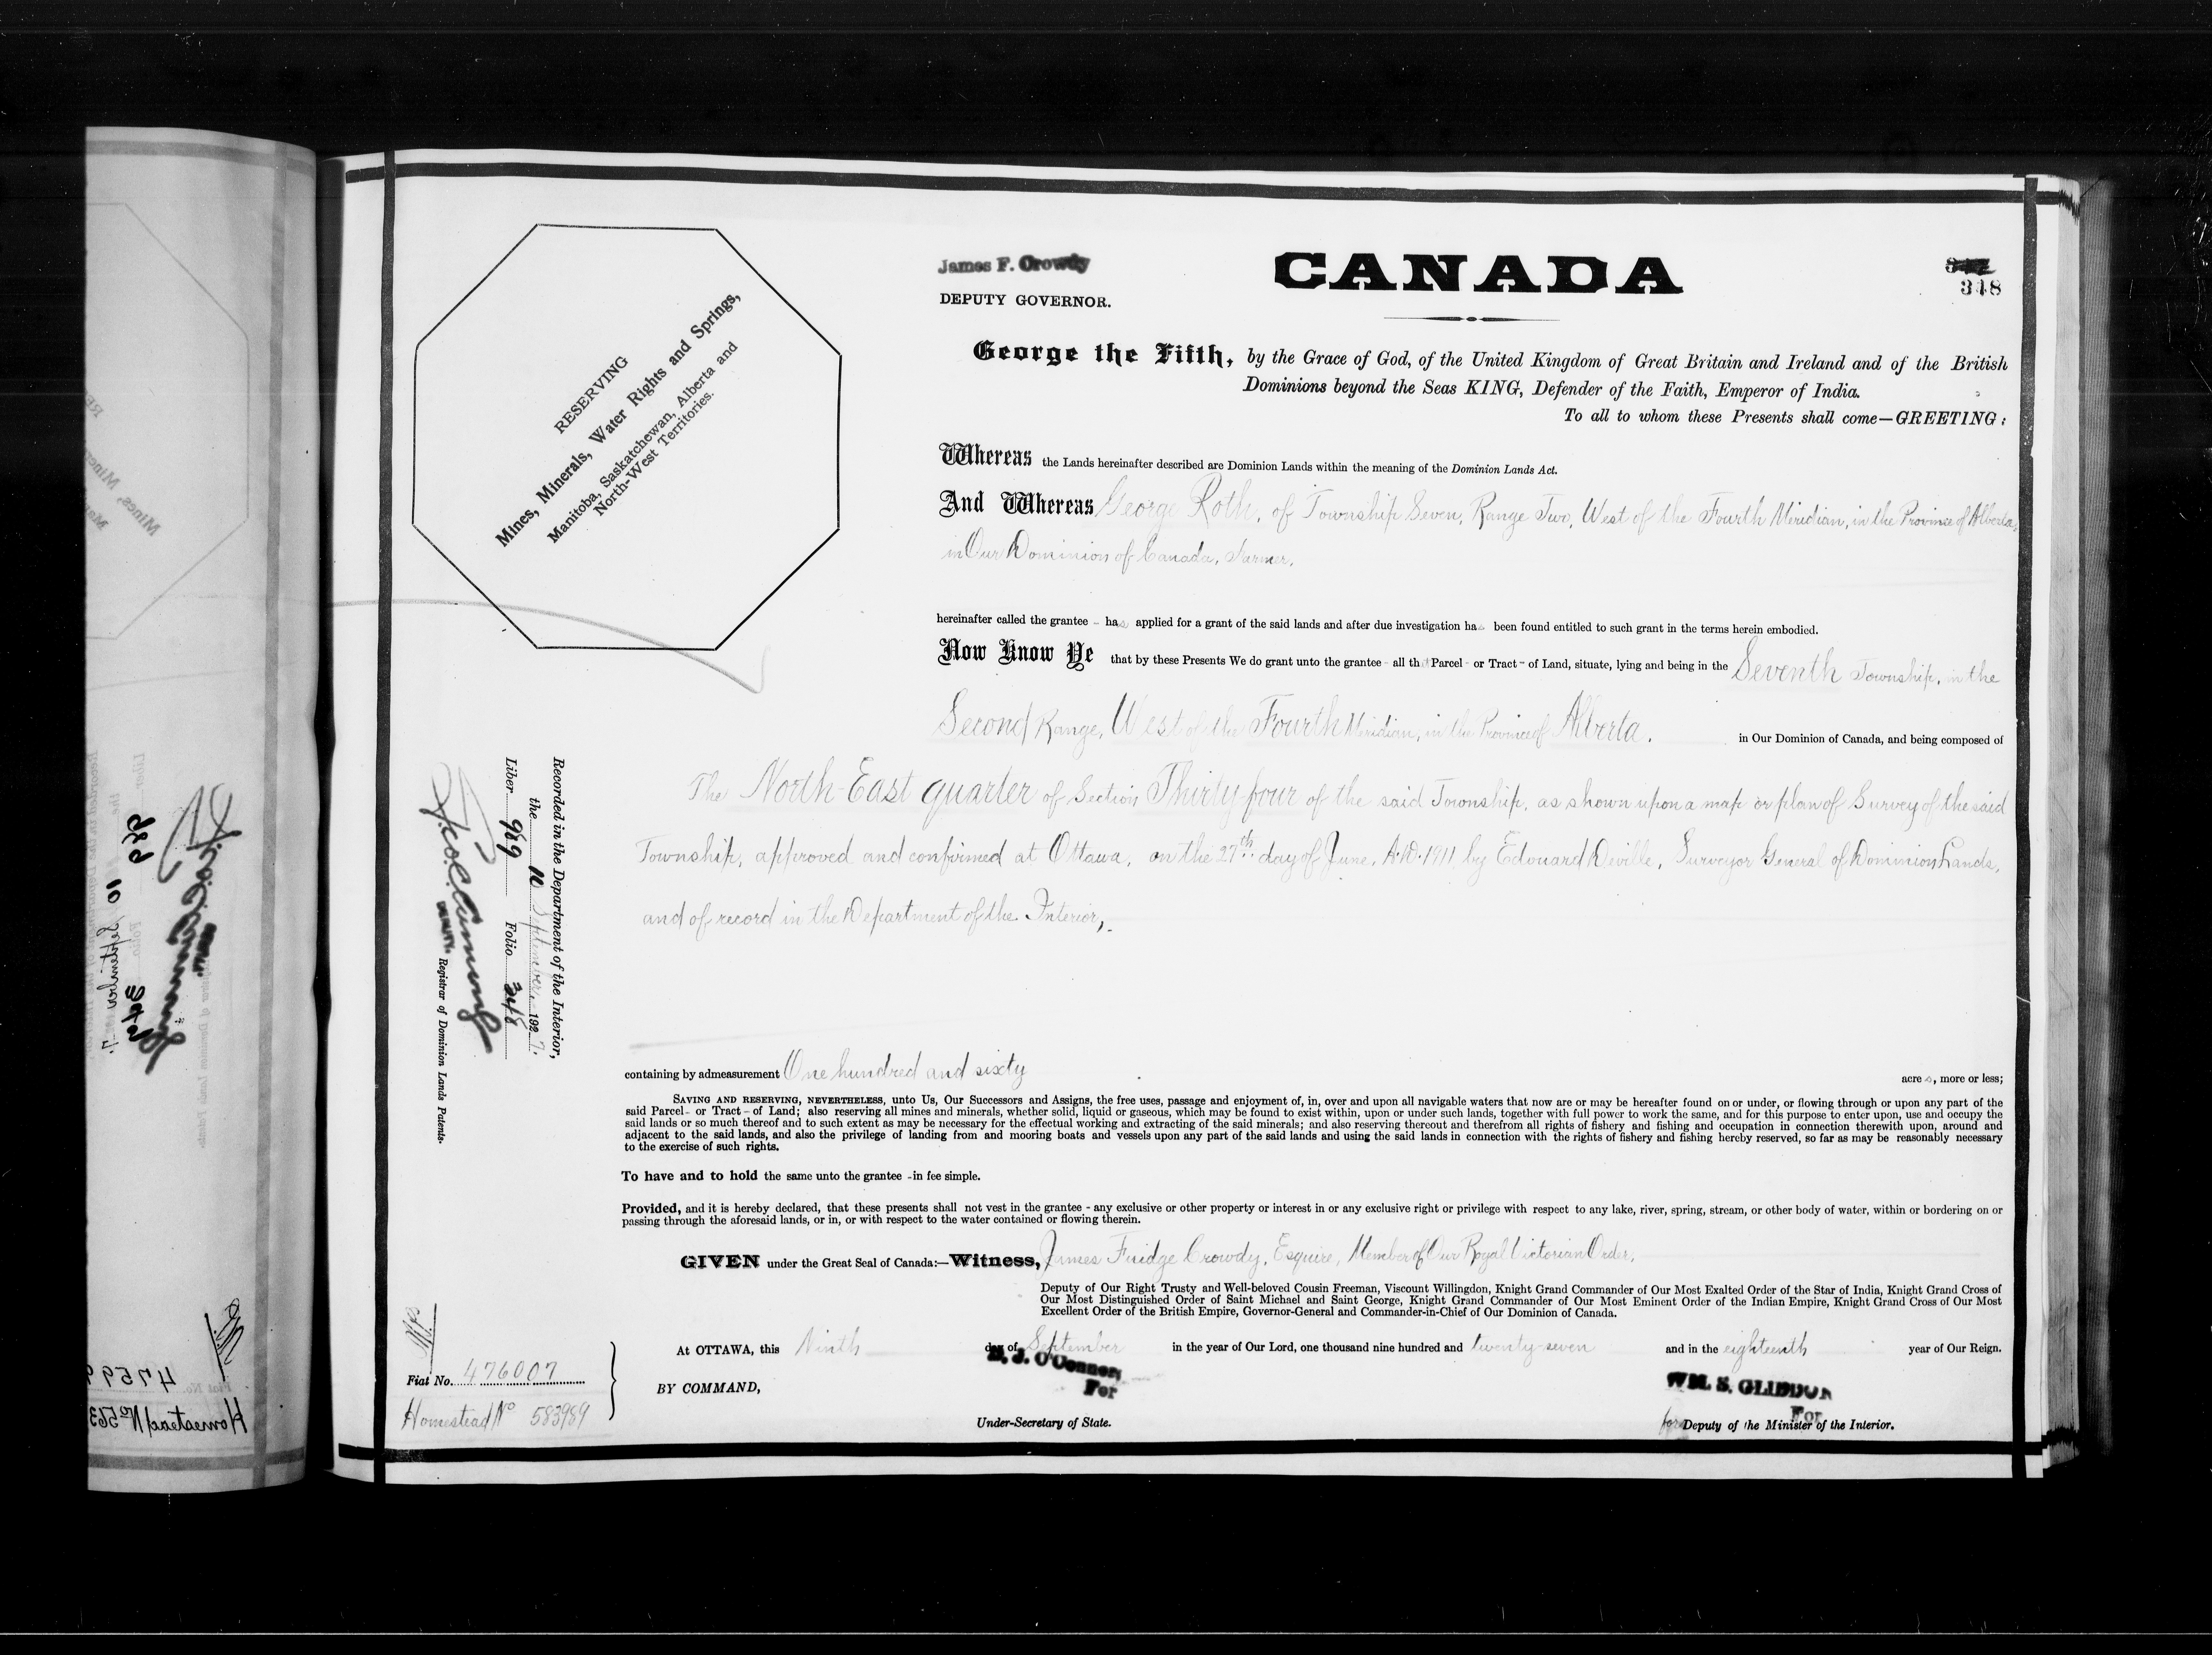 James F. Crowdy
DEPUTY GOVERNOR.
CANADA
348
RESERVING
Mines, Minerals, Water Rights and Springs,
Manitoba, Saskatchewan, Alberta and
North-West Territories.
George the Fifth, by the Grace of God, of the United Kingdom of Great Britain and Ireland and of the British
Dominions beyond the Seas KING, Defender of the Faith, Emperor of India.
To all to whom these Presents shall come—GREETING:
Whereas the Lands hereinafter described are Dominion Lands within the meaning of the Dominion Lands Act.
And Whereas George Roth, of Township Seven, Range Two, West of the Fourth Meridian, in the Province of Alberta,
in Our Dominion of Canada, Farmer,
hereinafter called the grantee - has applied for a grant of the said lands and after due investigation has been found entitled to such grant in the terms herein embodied.
Now Know Ye that by these Presents We do grant unto the grantee - all that Parcel - or Tract - of Land, situate, lying and being in the Seventh Township, in the
Second Range, West of the Fourth Meridian, in the Province of Alberta. in Our Dominion of Canada, and being composed of
The North East quarter of Section Thirty four of the said Township, as shown upon a map or plan of Survey of the said
Township, approved and confirmed at Ottawa, on the 27th day of June, A.D. 1911 by Edouard Deville, Surveyor General of Dominion Lands,
and of record in the Department of the Interior,
Recorded in the Department of the Interior,
the 10 September, 1927.
Liber 989 Folio 348
DEPUTY Registrar of Dominion Lands Patents.
containing by admeasurement One hundred and sixty acres, more or less;
SAVING AND RESERVING, NEVERTHELESS, unto Us, Our Successors and Assigns, the free uses, passage and enjoyment of, in, over and upon all navigable waters that now are or may be hereafter found on or under, or flowing through or upon any part of the
said Parcel - or Tract - of Land; also reserving all mines and minerals, whether solid, liquid or gaseous, which may be found to exist within, upon or under such lands, together with full power to work the same, and for this purpose to enter upon, use and occupy the
said lands or so much thereof and to such extent as may be necessary for the effectual working and extracting of the said minerals; and also reserving thereout and therefrom all rights of fishery and fishing and occupation in connection therewith upon, around and
adjacent to the said lands, and also the privilege of landing from and mooring boats and vessels upon any part of the said lands and using the said lands in connection with the rights of fishery and fishing hereby reserved, so far as may be reasonably necessary
to the exercise of such rights.
To have and to hold the same unto the grantee - in fee simple.
Provided, and it is hereby declared, that these presents shall not vest in the grantee - any exclusive or other property or interest in or any exclusive right or privilege with respect to any lake, river, spring, stream, or other body of water, within or bordering on or
passing through the aforesaid lands, or in, or with respect to the water contained or flowing therein.
GIVEN under the Great Seal of Canada:—Witness, James Fuidge Crowdy, Esquire, Member of Our Royal Victorian Order,
Deputy of Our Right Trusty and Well-beloved Cousin Freeman, Viscount Willingdon, Knight Grand Commander of Our Most Exalted Order of the Star of India, Knight Grand Cross of
Our Most Distinguished Order of Saint Michael and Saint George, Knight Grand Commander of Our Most Eminent Order of the Indian Empire, Knight Grand Cross of Our Most
Excellent Order of the British Empire, Governor-General and Commander-in-Chief of Our Dominion of Canada.
At OTTAWA, this Ninth day of September in the year of Our Lord, one thousand nine hundred and twenty-seven and in the eighteenth year of Our Reign.
Fiat No. 476007
Homestead No 583989
BY COMMAND,
D. J. O'Connor,
For
Under-Secretary of State.
WM. S. GLIDDON
For
for Deputy of the Minister of the Interior.